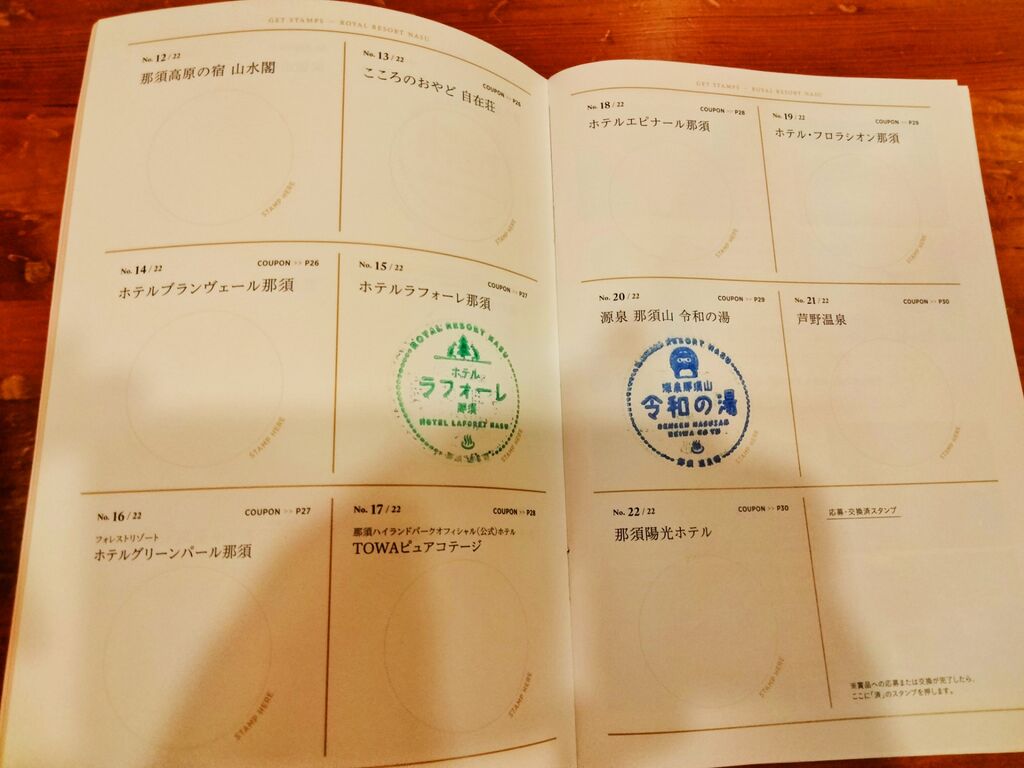 GET STAMPS — ROYAL RESORT NASU
No. 12 / 22
那須高原の宿 山水閣
STAMP HERE
No. 13 / 22
COUPON >> P26
こころのおやど 自在荘
STAMP HERE
No. 14 / 22
COUPON >> P26
ホテルブランヴェール那須
STAMP HERE
No. 15 / 22
COUPON >> P27
ホテルラフォーレ那須
ROYAL RESORT NASU
ホテル
ラフォーレ
那須
HOTEL LAFORET NASU
STAMP HERE
No. 16 / 22
COUPON >> P27
フォレストリゾート
ホテルグリーンパール那須
STAMP HERE
No. 17 / 22
COUPON >> P28
那須ハイランドパークオフィシャル(公式)ホテル
TOWAピュアコテージ
STAMP HERE
GET STAMPS — ROYAL RESORT NASU
No. 18 / 22
COUPON >> P28
ホテルエピナール那須
STAMP HERE
No. 19 / 22
COUPON >> P29
ホテル・フロラシオン那須
STAMP HERE
No. 20 / 22
COUPON >> P29
源泉 那須山 令和の湯
RESORT NASU
源泉那須山
令和の湯
GENSEN NASUSAN
REIWA NO YU
STAMP HERE
No. 21 / 22
COUPON >> P30
芦野温泉
STAMP HERE
No. 22 / 22
COUPON >> P30
那須陽光ホテル
STAMP HERE
応募・交換済スタンプ
※賞品への応募または交換が完了したら、
ここに「済」のスタンプを押します。